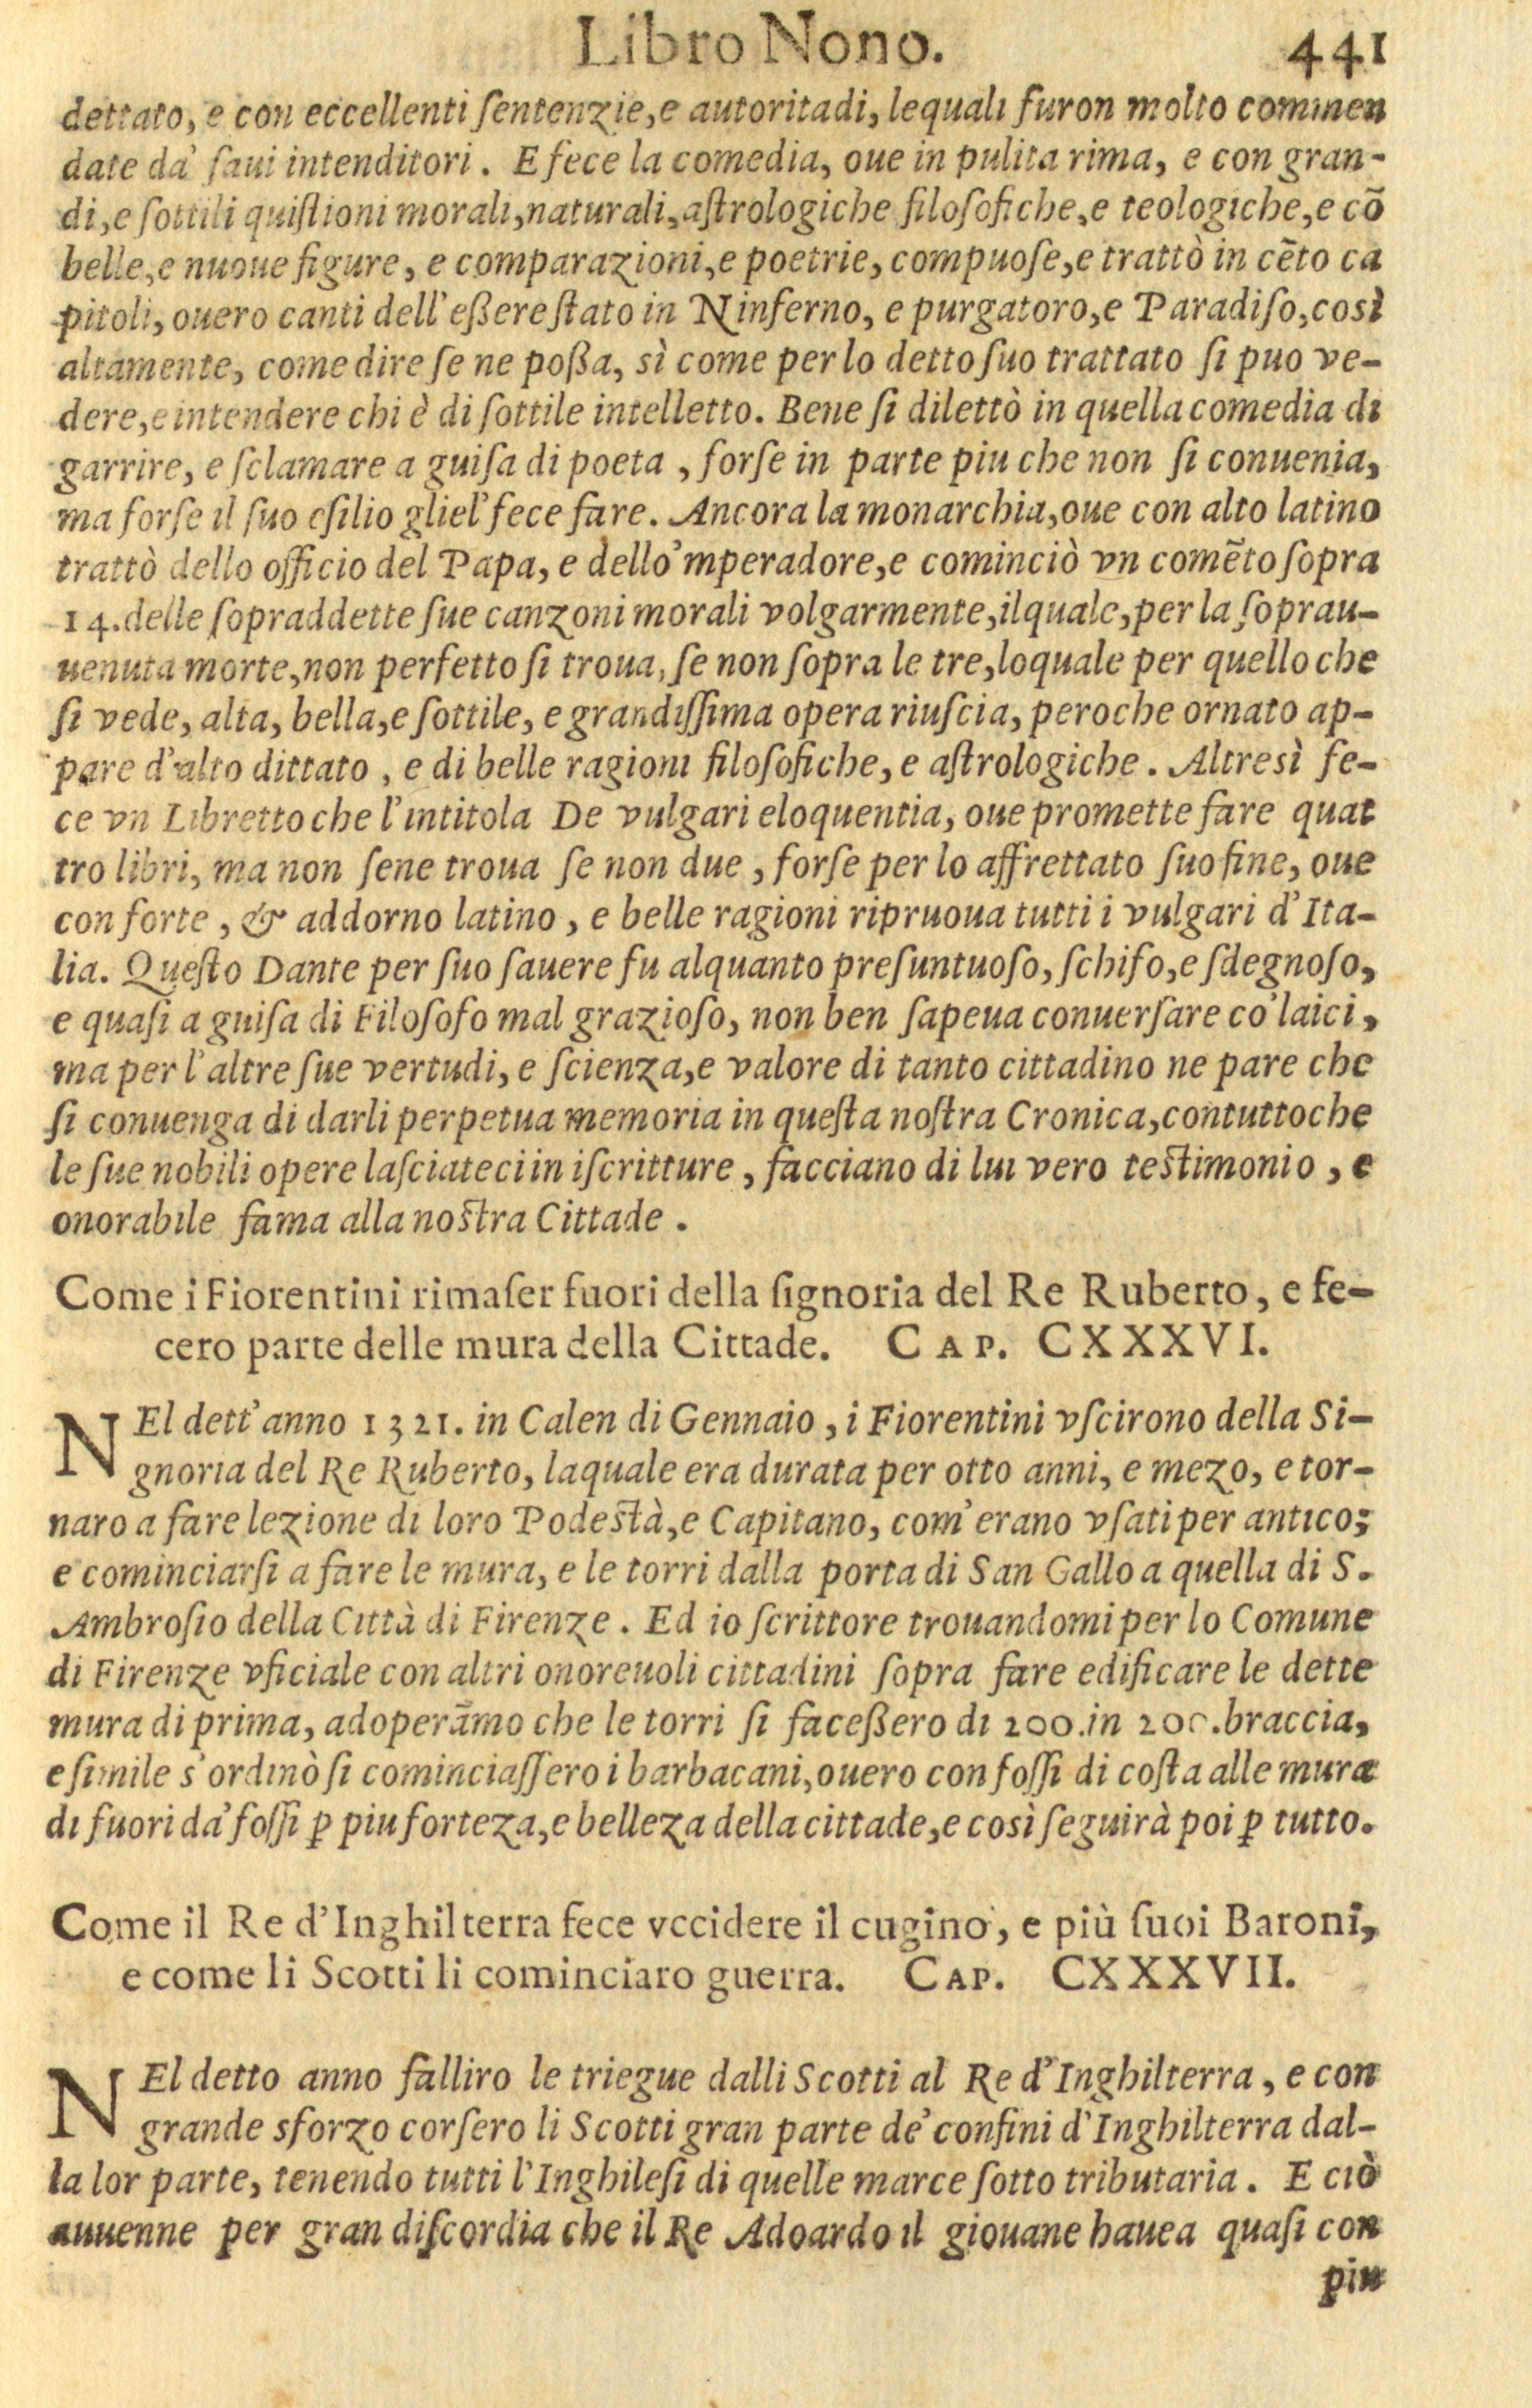 Libro Nono. 441
dettato, e con eccellenti ſentenzie, e autoritadi, lequali furon molto commen
date da' ſaui intenditori. E fece la comedia, oue in pulita rima, e con gran-
di, e ſottili quiſtioni morali, naturali, aſtrologiche filoſofiche, e teologiche, e cõ
belle, e nuoue figure, e comparazioni, e poetrie, compuoſe, e trattò in cẽto ca
pitoli, ouero canti dell'eßere ſtato in Ninferno, e purgatoro, e Paradiſo, così
altamente, come dire ſe ne poßa, sì come per lo detto ſuo trattato ſi puo ve-
dere, e intendere chi è di ſottile intelletto. Bene ſi dilettò in quella comedia di
garrire, e ſclamare a guiſa di poeta, forſe in parte piu che non ſi conuenia,
ma forſe il ſuo eſilio gliel' fece fare. Ancora la monarchia, oue con alto latino
trattò dello officio del Papa, e dello'mperadore, e cominciò vn comẽto ſopra
14. delle ſopraddette ſue canzoni morali volgarmente, ilquale, per la ſoprau-
uenuta morte, non perfetto ſi troua, ſe non ſopra le tre, loquale per quello che
ſi vede, alta, bella, e ſottile, e grandiſſima opera riuſcia, peroche ornato ap-
pare d'alto dittato, e di belle ragioni filoſofiche, e aſtrologiche. Altresì fe-
ce vn Libretto che l'intitola De vulgari eloquentia, oue promette fare quat
tro libri, ma non ſene troua ſe non due, forſe per lo affrettato ſuo fine, oue
con forte, & addorno latino, e belle ragioni ripruoua tutti i vulgari d'Ita-
lia. Queſto Dante per ſuo ſauere fu alquanto preſuntuoſo, ſchifo, e ſdegnoſo,
e quaſi a guiſa di Filoſofo mal grazioſo, non ben ſapeua conuerſare co' laici,
ma per l'altre ſue vertudi, e ſcienza, e valore di tanto cittadino ne pare che
ſi conuenga di darli perpetua memoria in queſta noſtra Cronica, contuttoche
le ſue nobili opere laſciateci in iſcritture, facciano di lui vero teſtimonio, e
onorabile fama alla noſtra Cittade.
Come i Fiorentini rimaſer fuori della ſignoria del Re Ruberto, e fe-
cero parte delle mura della Cittade. CAP. CXXXVI.
NEl dett'anno 1321. in Calen di Gennaio, i Fiorentini vſcirono della Si-
gnoria del Re Ruberto, laquale era durata per otto anni, e mezo, e tor-
naro a fare lezione di loro Podeſtà, e Capitano, com'erano vſati per antico;
e cominciarſi a fare le mura, e le torri dalla porta di San Gallo a quella di S.
Ambroſio della Città di Firenze. Ed io ſcrittore trouandomi per lo Comune
di Firenze vficiale con altri onoreuoli cittadini ſopra fare edificare le dette
mura di prima, adoperãmo che le torri ſi faceßero di 200. in 200. braccia,
e ſimile s'ordinò ſi cominciaſſero i barbacani, ouero con foſſi di coſta alle mura
di fuori da' foſſi ꝑ piu forteza, e belleza della cittade, e così ſeguirà poi ꝑ tutto.
Come il Re d'Inghilterra fece vccidere il cugino, e più ſuoi Baroni,
e come li Scotti li cominciaro guerra. CAP. CXXXVII.
NEl detto anno falliro le triegue dalli Scotti al Re d'Inghilterra, e con
grande sforzo corſero li Scotti gran parte de' confini d'Inghilterra dal-
la lor parte, tenendo tutti l'Inghileſi di quelle marce ſotto tributaria. E ciò
auuenne per gran diſcordia che il Re Adoardo il giouane hauea quaſi con
piu